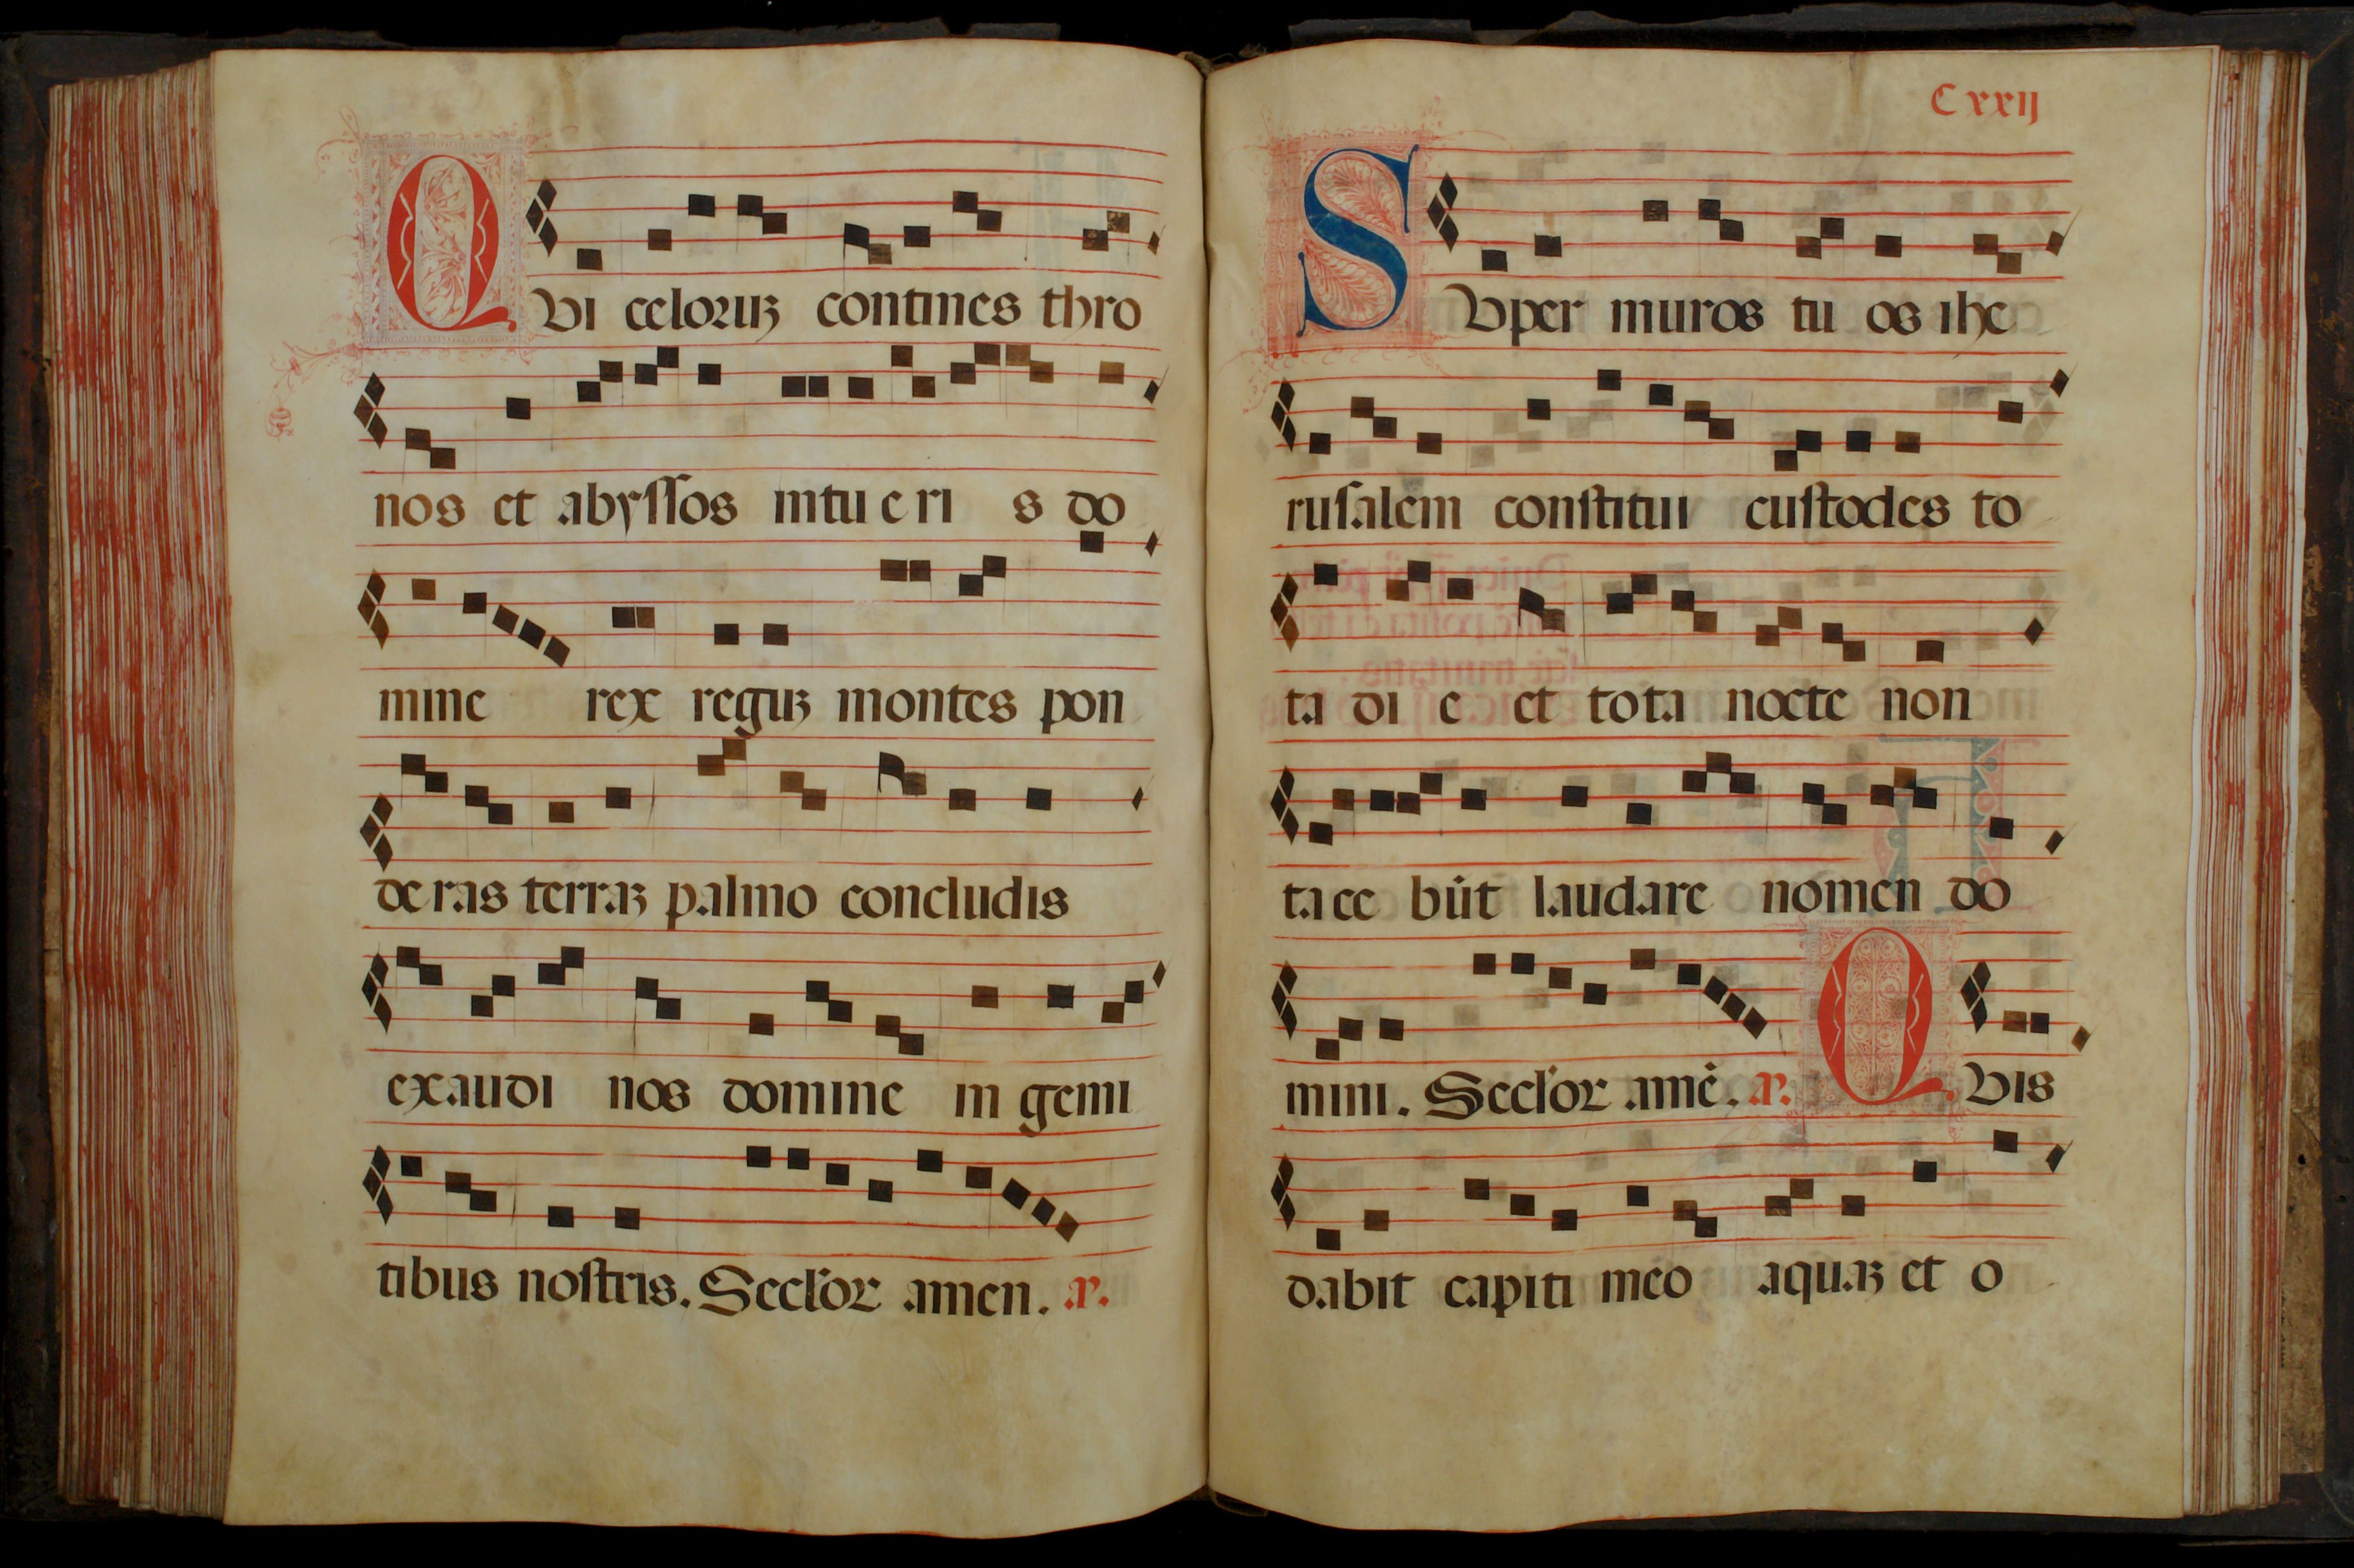 QVI celoruꝫ contines thro
nos et abyſſos intu e ri s do
mine rex reguꝫ montes pon
de ras terraꝫ palmo concludis
exaudi nos domine in gemi
tibus noſtris. Seclor amen. a.
Cxxij
SVper muros tu os ihe
ruſalem conſtitui cuſtodes to
ta di e et tota nocte non
tace būt laudare nomen do
mini. Seclor amē. a. QVis
dabit capiti meo aquaꝫ et o